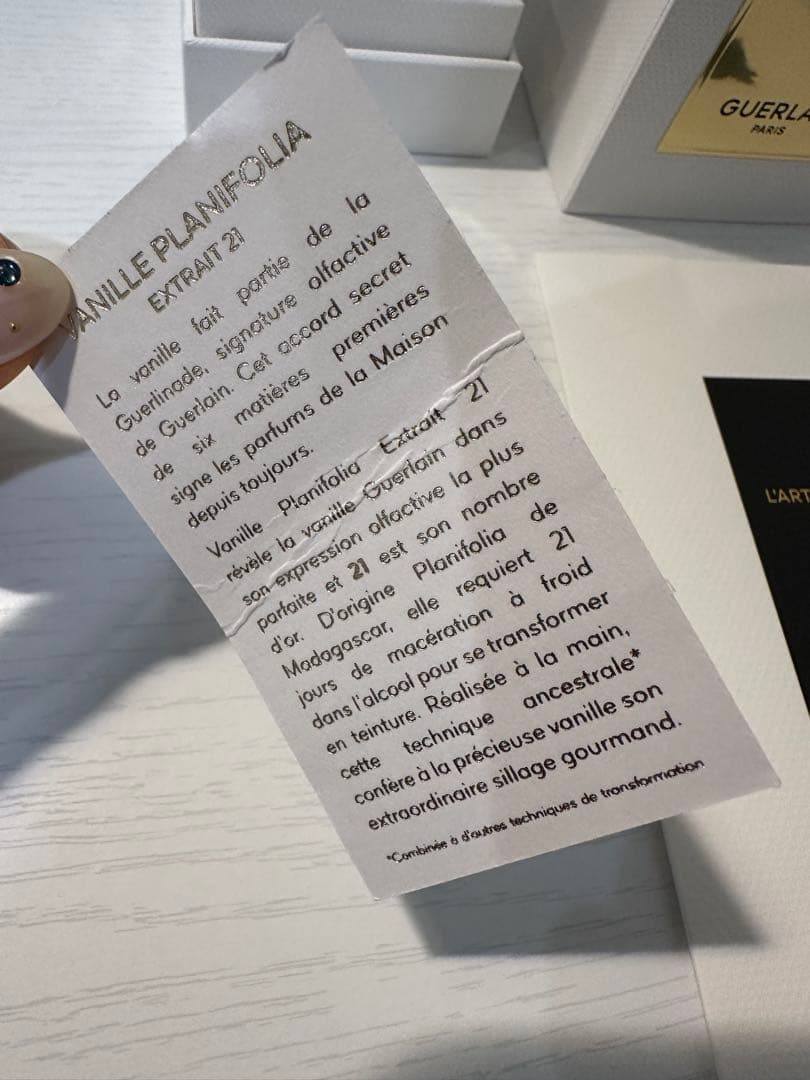 VANILLE PLANIFOLIA
EXTRAIT 21
La vanille fait partie de la
Guerlinade, signature olfactive
de Guerlain. Cet accord secret
de six matières premières
signe les parfums de la Maison
depuis toujours.
Vanille Planifolia Extrait 21
révèle la vanille Guerlain dans
son expression olfactive la plus
parfaite et 21 est son nombre
d'or. D'origine Planifolia de
Madagascar, elle requiert 21
jours de macération à froid
dans l'alcool pour se transformer
en teinture. Réalisée à la main,
cette technique ancestrale*
confère à la précieuse vanille son
extraordinaire sillage gourmand.
*Combinée à d'autres techniques de transformation
GUERLA
PARIS
L'ART